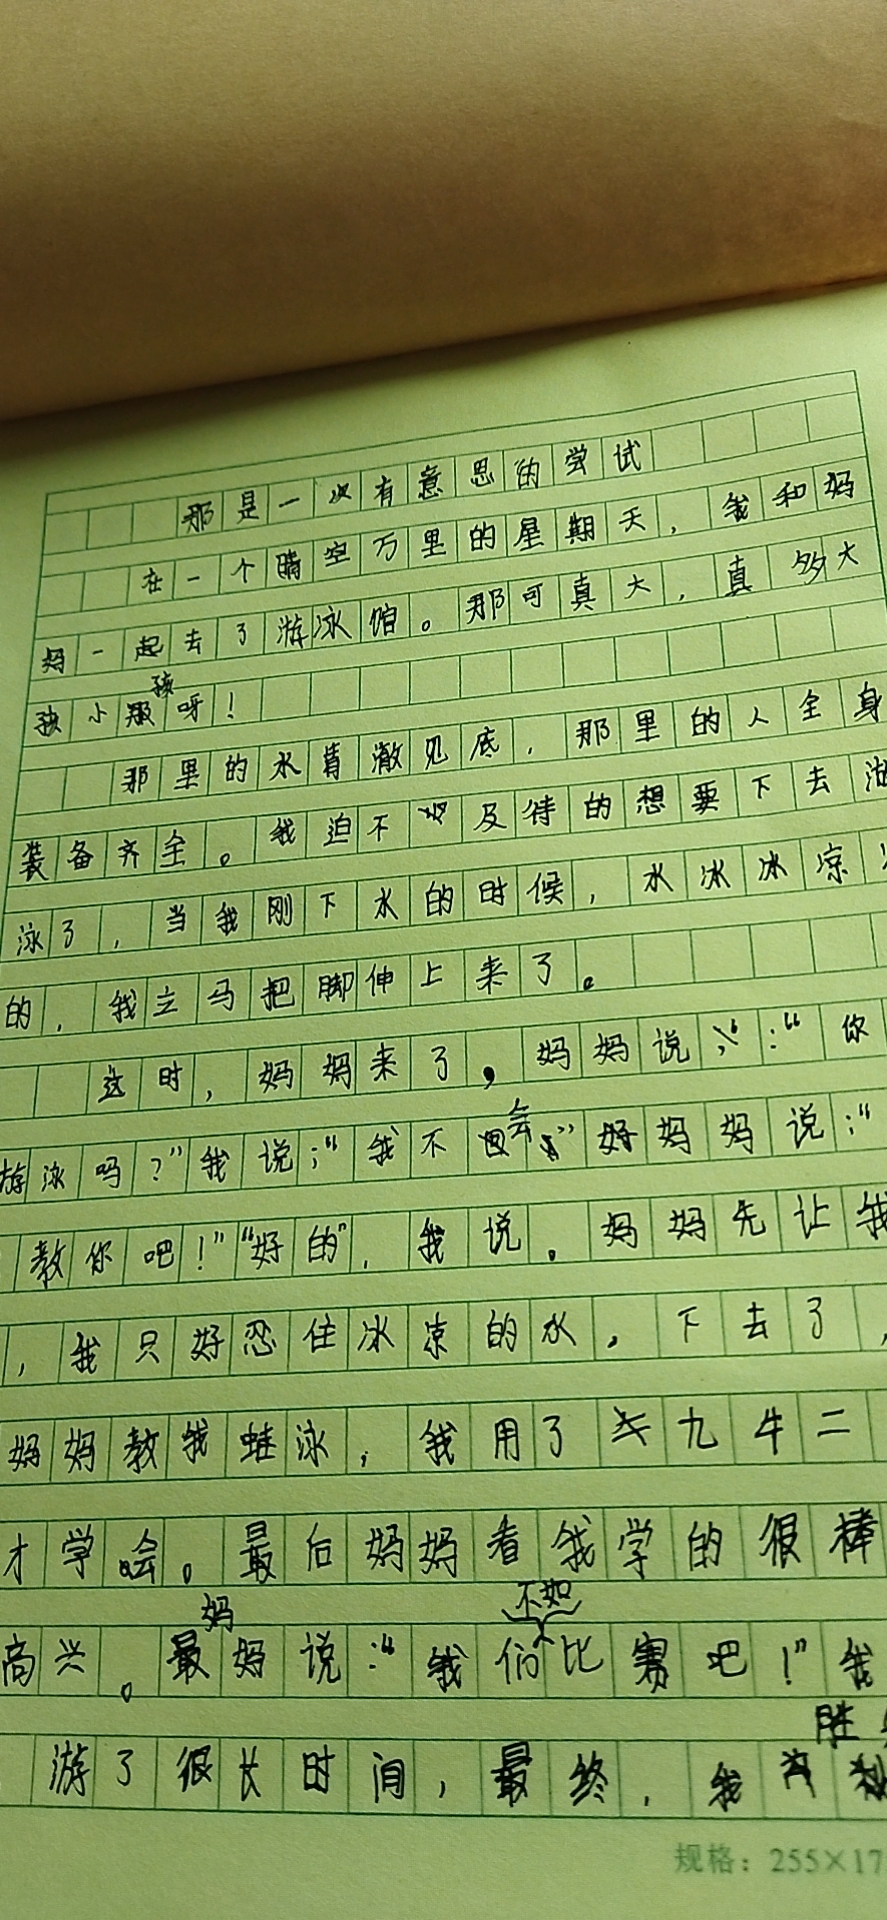 那是一次有意思的尝试
在一个晴空万里的星期天，我和妈
妈一起去了游泳馆。那可真大，真多大
孩小孩呀！
那里的水清澈见底，那里的人全身
装备齐全。我迫不及待的想要下去游
泳了，当我刚下水的时候，水冰冰凉
的，我立马把脚伸上来了。
这时，妈妈来了，妈妈说：“你
游泳吗？”我说：“我不会”妈妈说：“
教你吧！”“好的”，我说。妈妈先让我
，我只好忍住冰凉的水，下去了，
妈妈教我蛙泳，我用了九牛二
才学会。最后妈妈看我学的很棒
高兴。妈妈说：“我们不如比赛吧！”我
游了很长时间，最终，我胜
规格：255×17